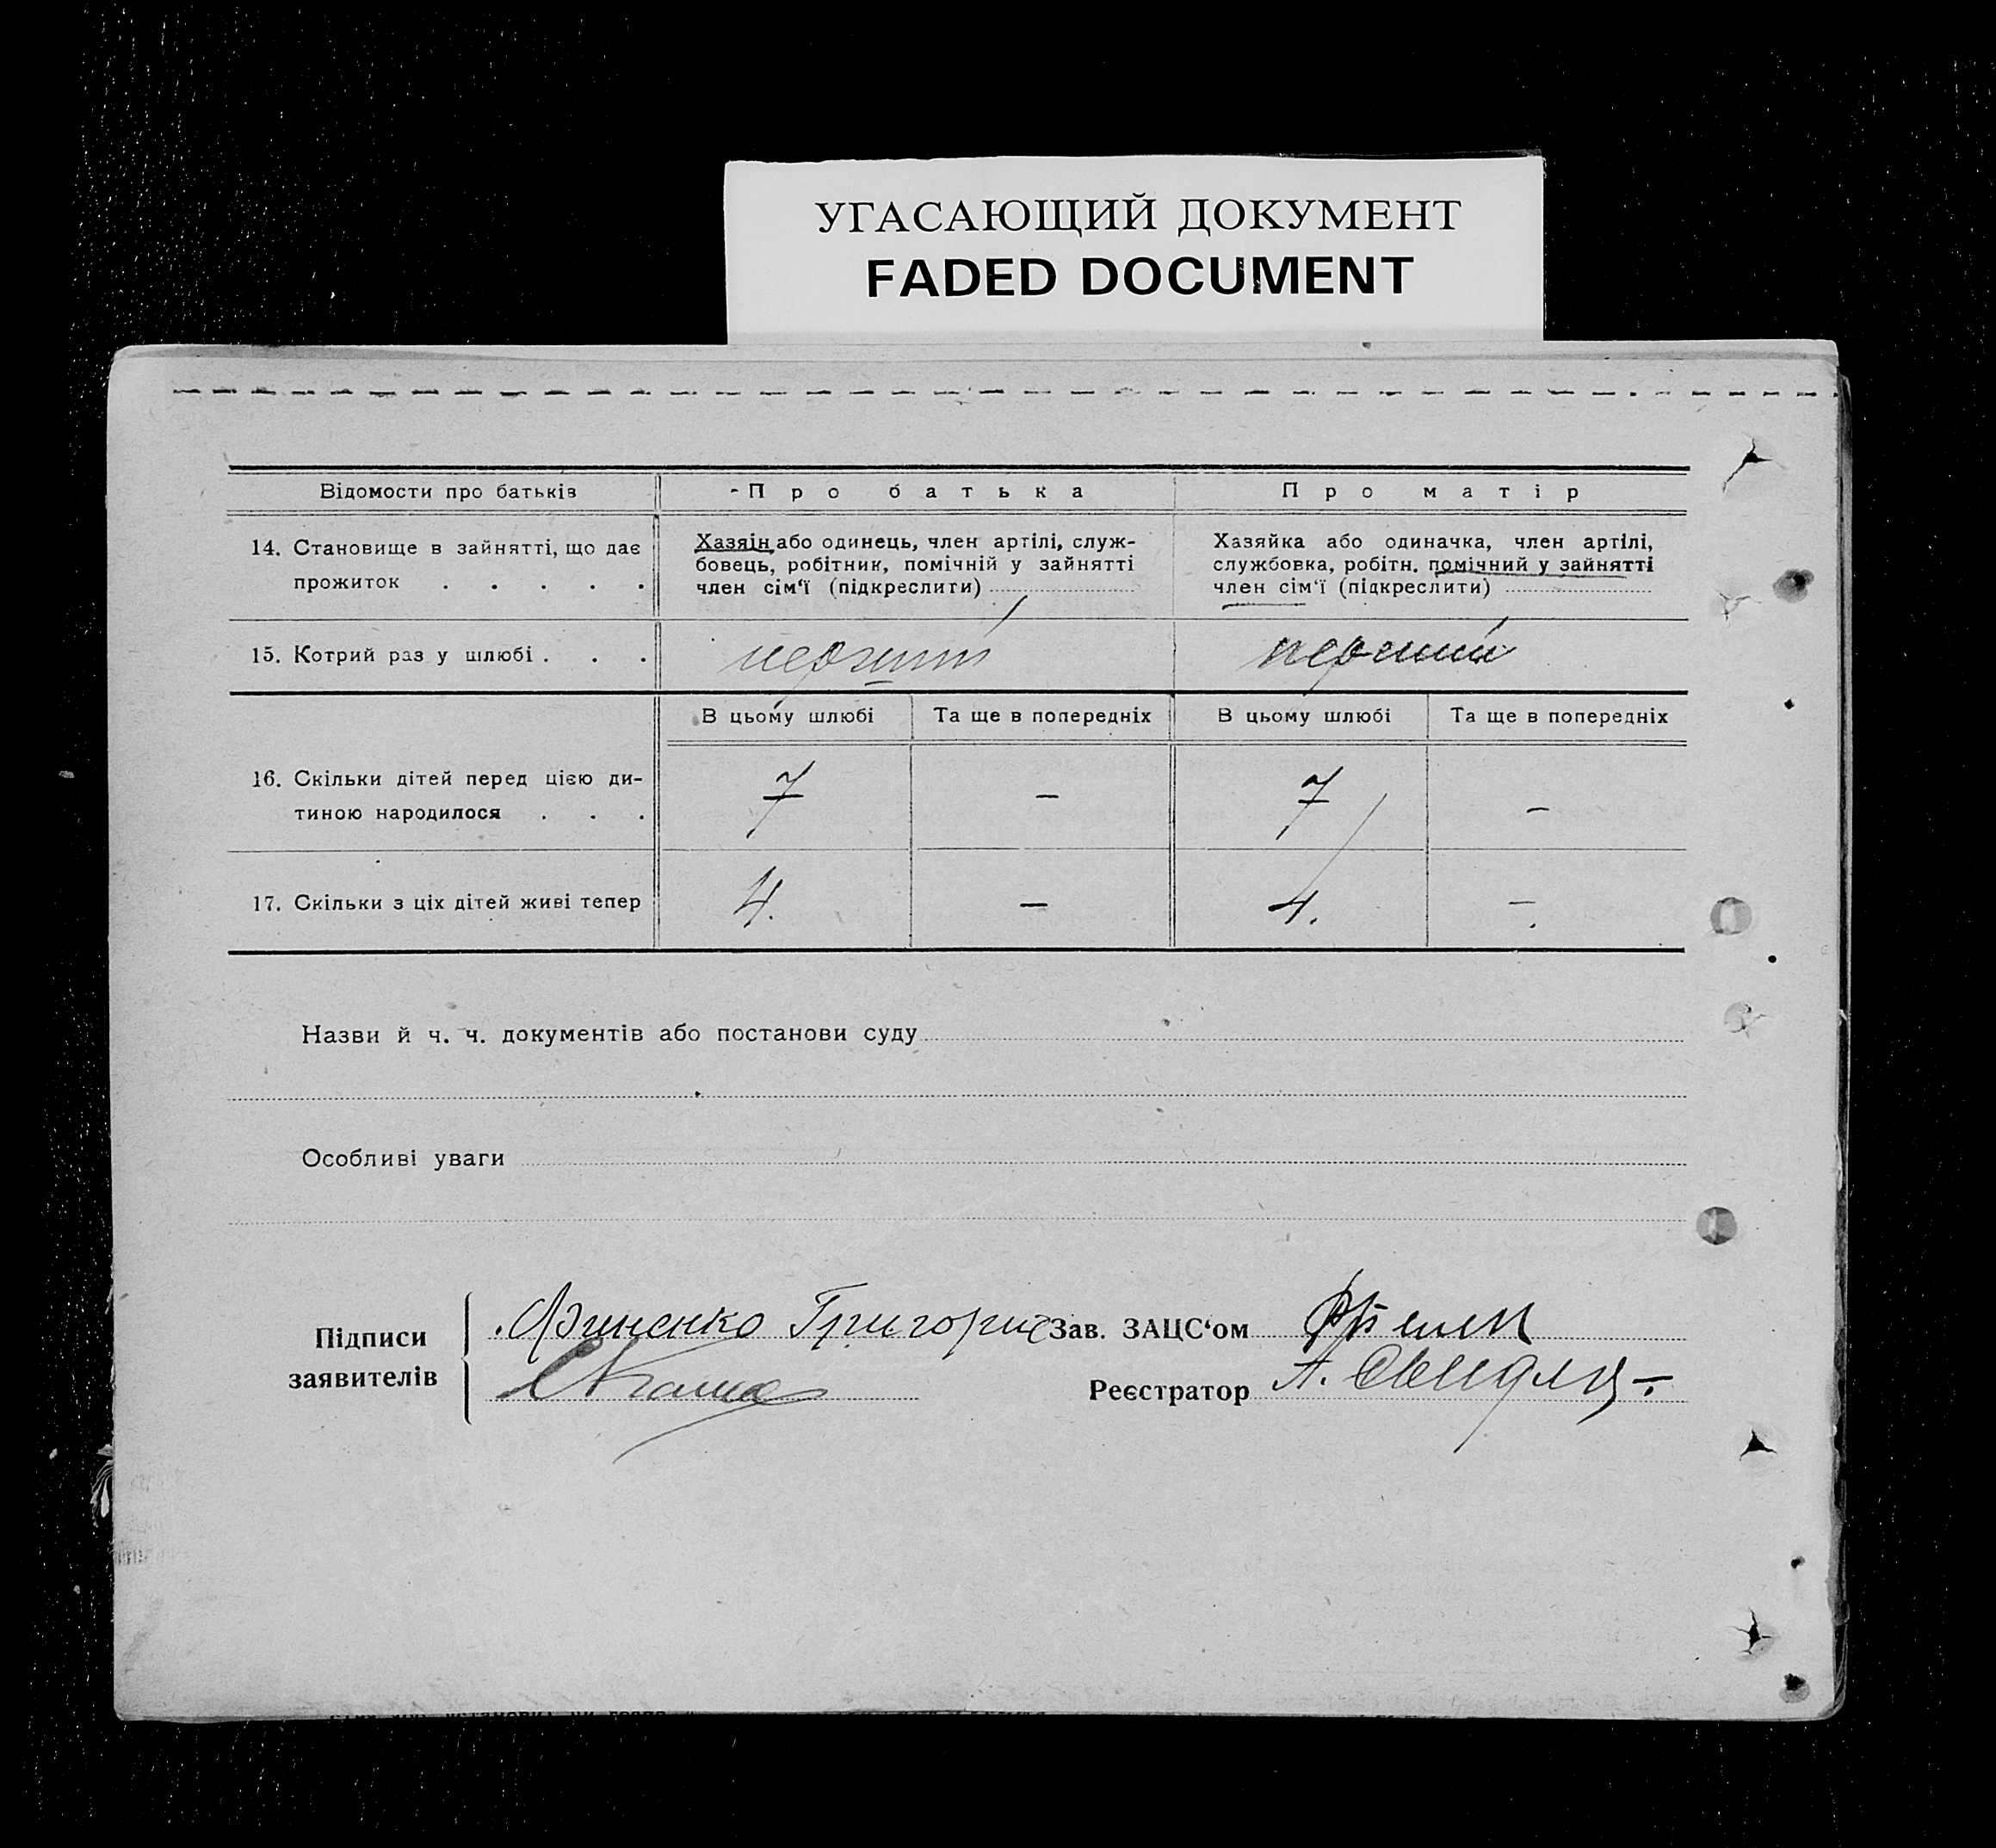 УГАСАЮЩИЙ ДОКУМЕНТ
FADED DOCUMENT
Відомости про батьків
Про батька
Про матір
14. Становище в зайнятті, що дає
прожиток . . . . .
Хазяін або одинець, член артілі, служ-
бовець, робітник, помічній у зайнятті
член сім'ї (підкреслити)
Хазяйка або одиначка, член артілі,
службовка, робітн. помічний у зайнятті
член сім'ї (підкреслити)
15. Котрий раз у шлюбі . . .
перший
перший
В цьому шлюбі
Та ще в попередніх
В цьому шлюбі
Та ще в попередніх
16. Скільки дітей перед цією ди-
тиною народилося . . .
7
–
7
–
17. Скільки з ціх дітей живі тепер
4.
–
4.
–
Назви й ч. ч. документів або постанови суду
Особливі уваги
Підписи
заявителів
Григорий
Зав. ЗАЦС'ом
Реєстратор
А.